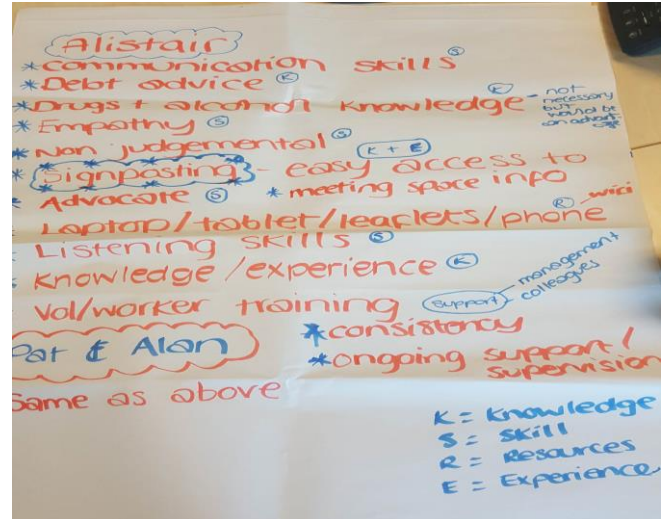 Alistair
* communication skills (S)
* Debt advice (K)
* Drugs + alcohol knowledge (K) - not necessary but would be an advant.
* Empathy (S)
* Non judgemental (S)
* Signposting - easy access to (K + E)
* Advocate (S) * meeting space info
Laptop/tablet/leaflets/phone (R) wifi
Listening skills (S)
Knowledge/experience (K)
Vol/worker training (support) management colleagues
Pat & Alan
* consistency
* ongoing support/
supervision
Same as above
K = Knowledge
S = Skill
R = Resources
E = Experience